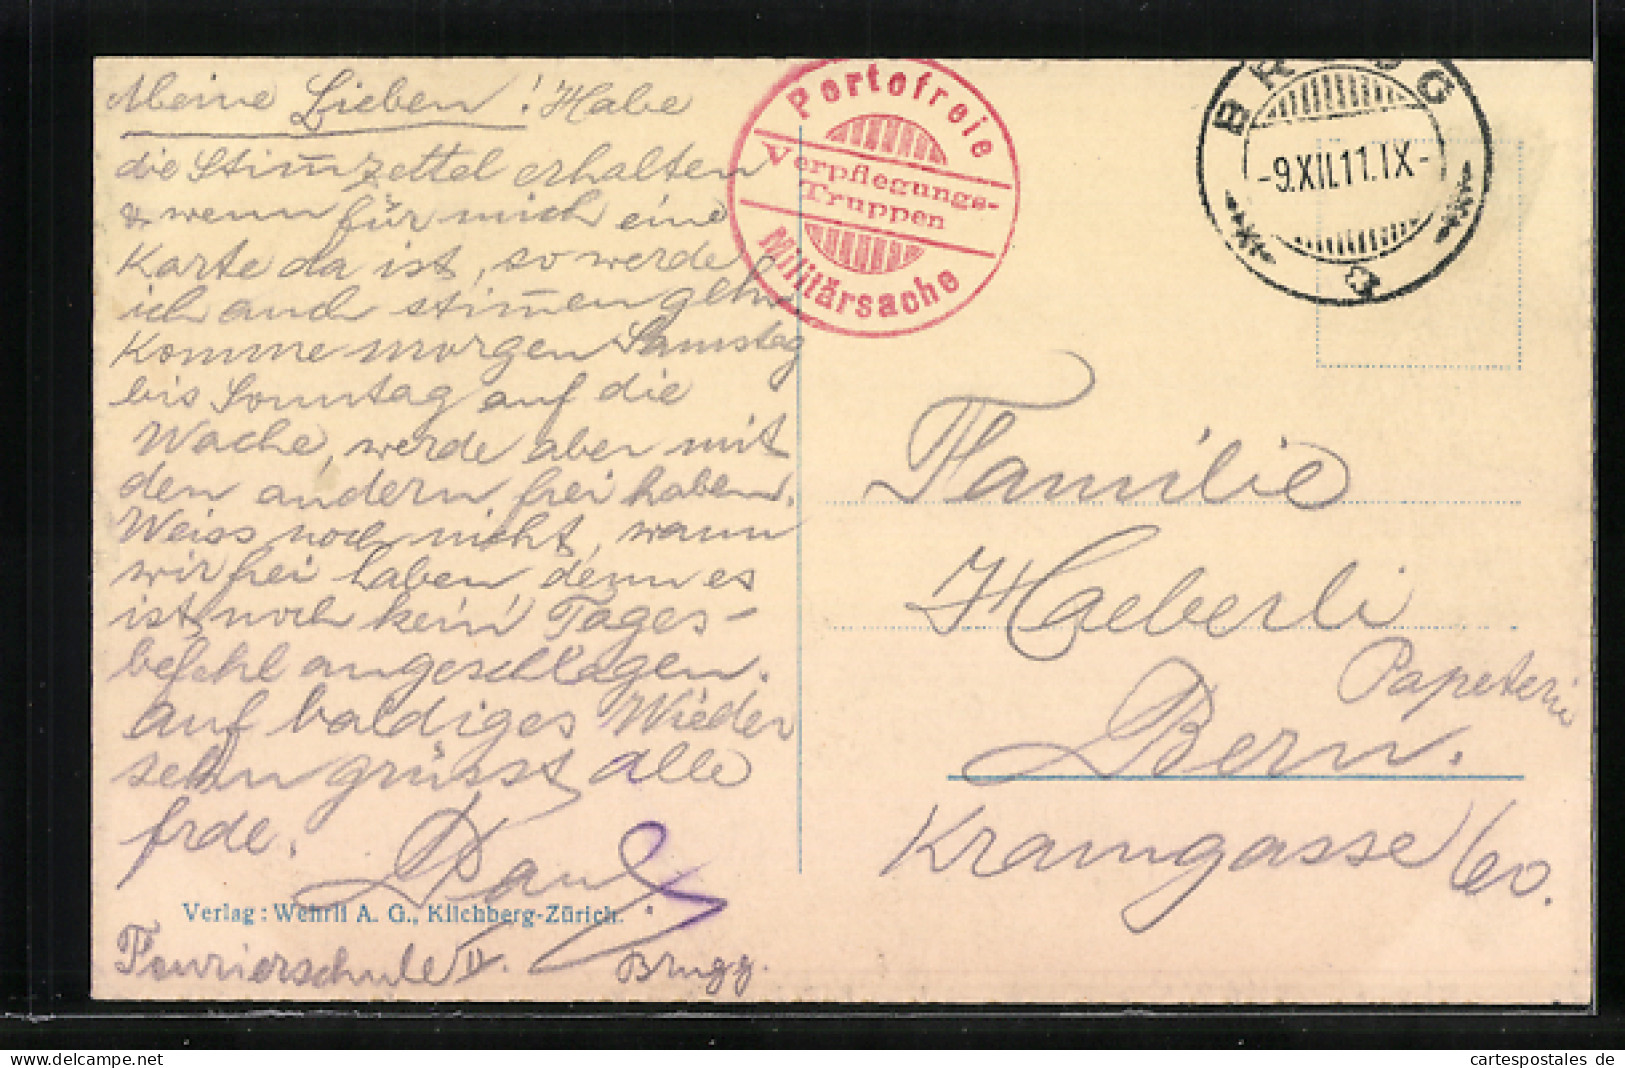 Meine Lieben! Habe
die Stim̅zettel erhalten
& wenn für mich eine
Karte da ist, so werde
ich auch stim̅en gehn
Komme morgen Samstag
bis Sonntag auf die
Wache, werde aber mit
den andern frei haben.
Weiss noch nicht, wann
wir frei haben, denn es
ist noch kein Tages-
befehl angeschlagen.
Auf baldiges Wieder
sehn grüsst alle
frdl.
Paul.
Verlag: Wehrli A. G., Kilchberg-Zürich.
Fourierschule II. Brugg.
Portofreie
Verpflegungs-
Truppen
Militärsache
BRUGG
-9.XII.11.IX-
Familie
Haeberli
Papeterie
Bern.
Kramgasse 60.
cartespostales de